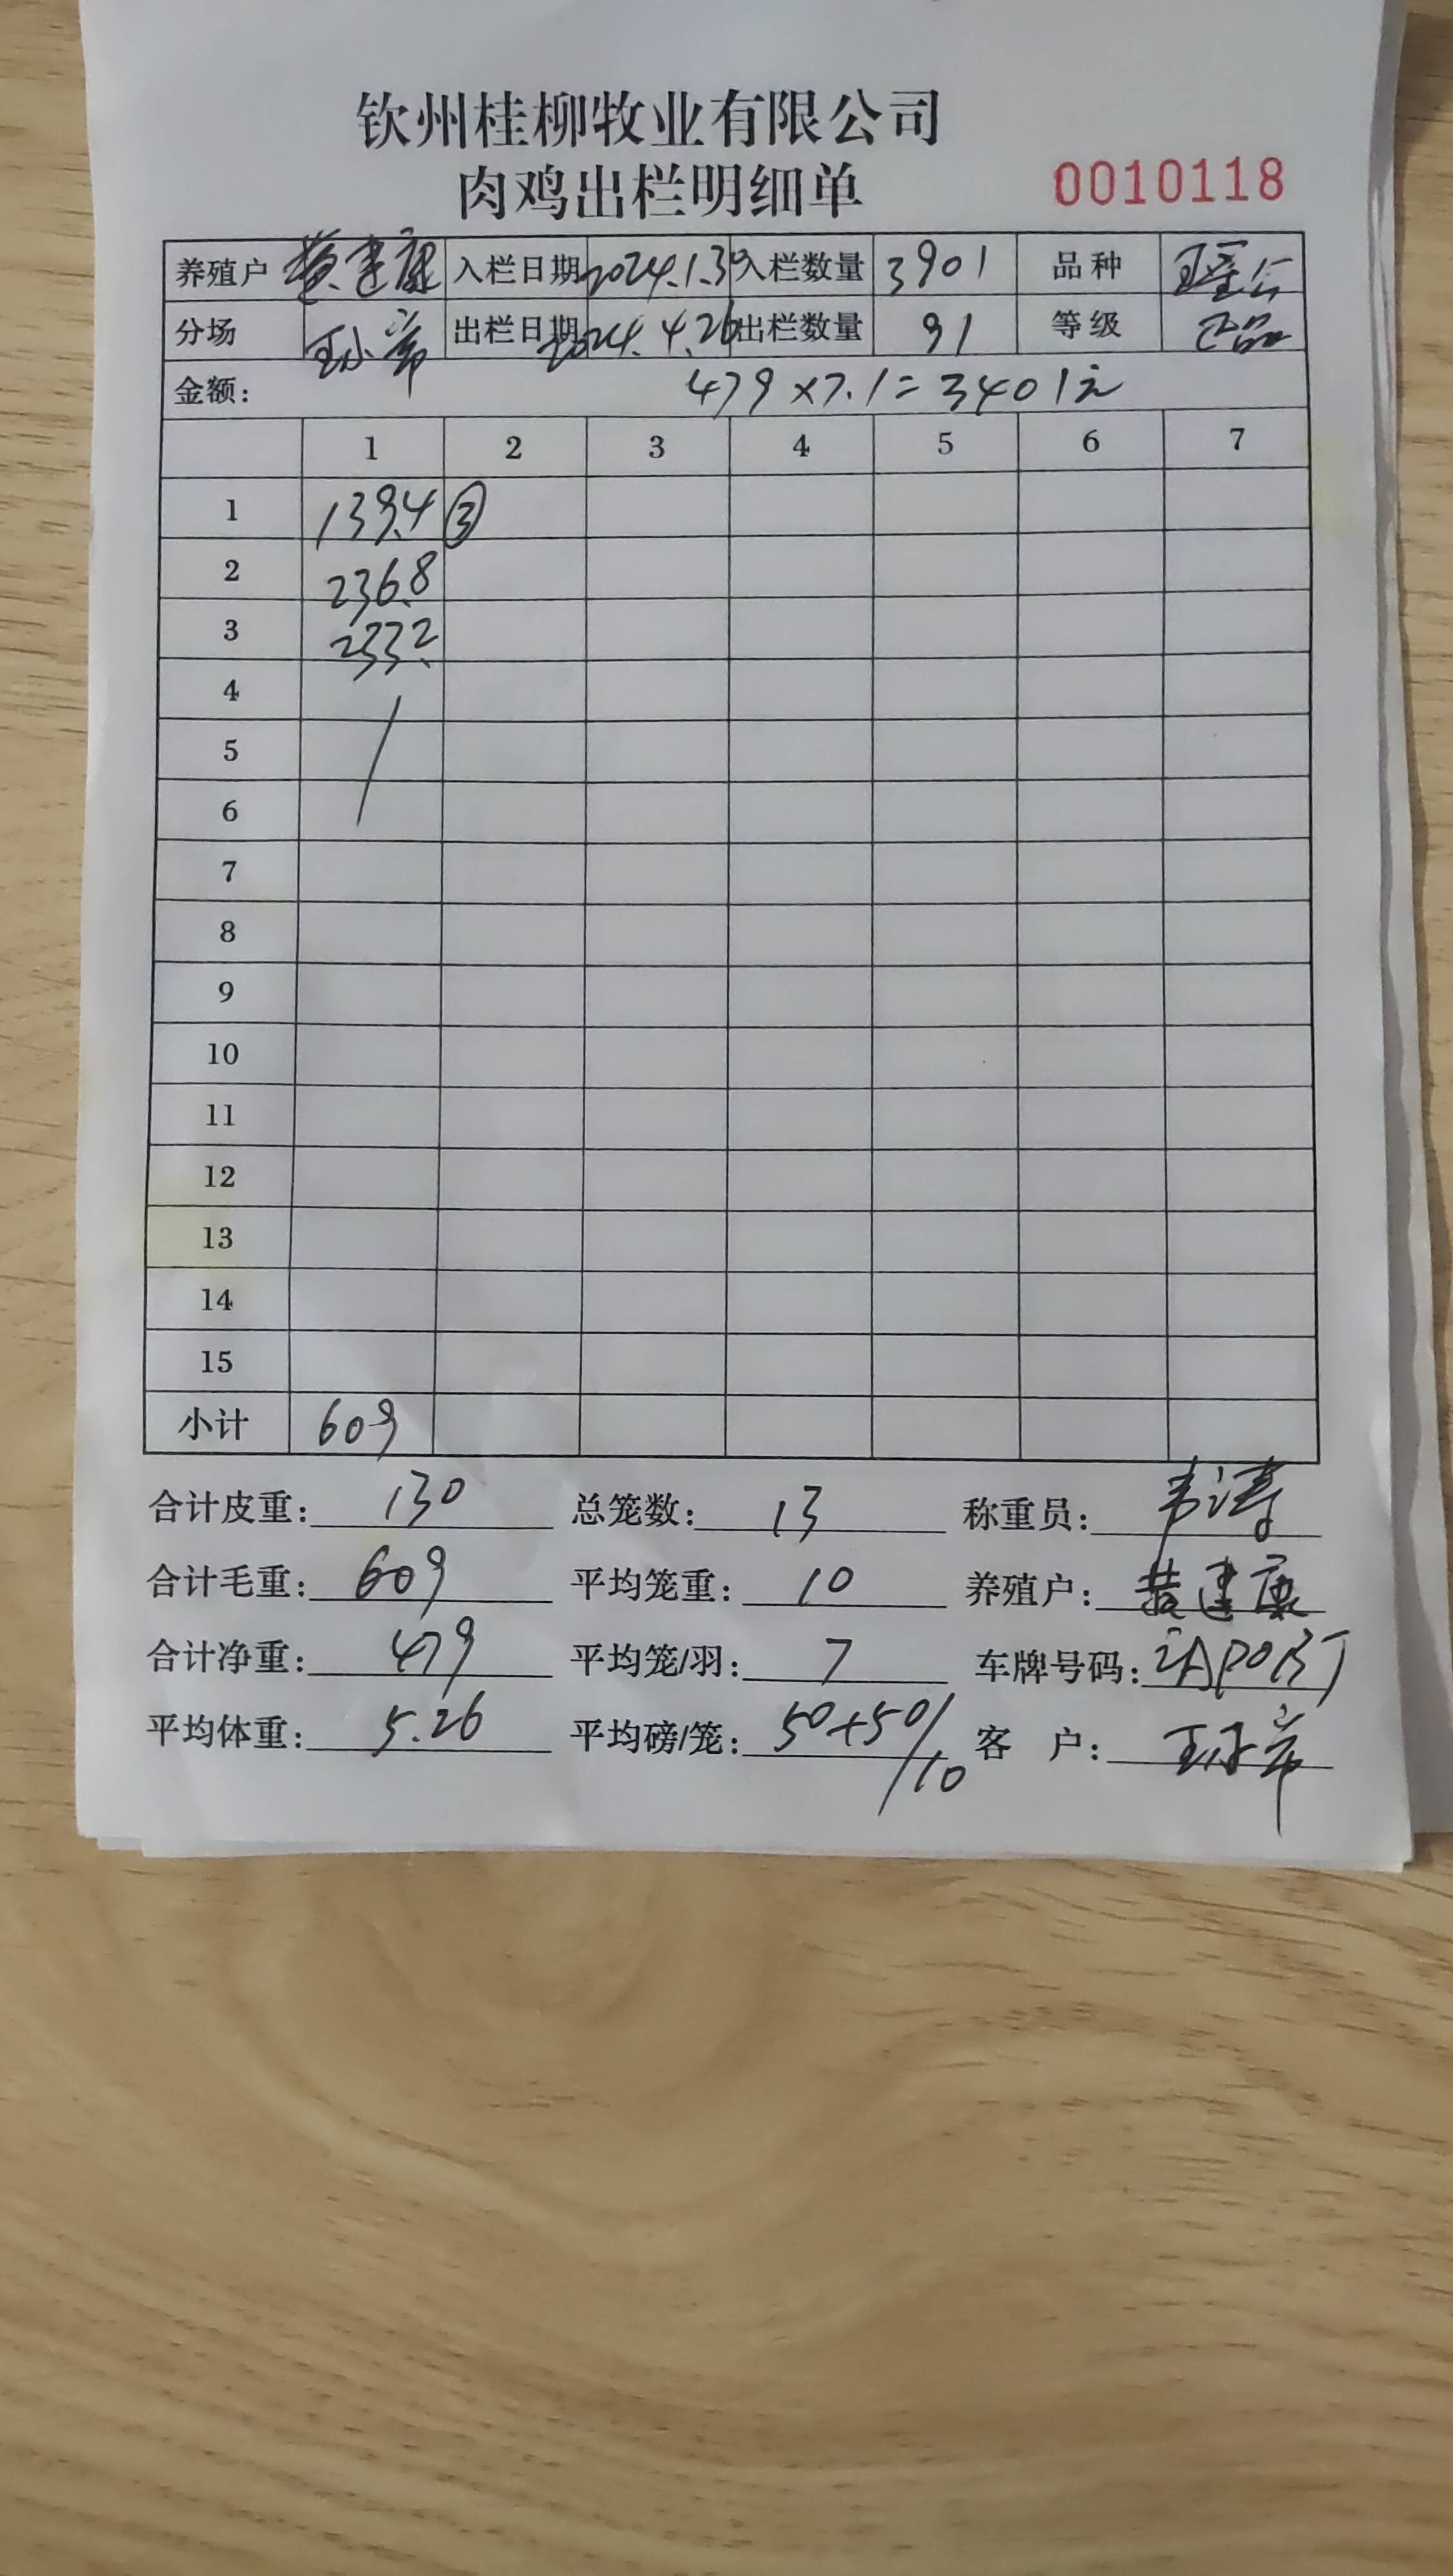 钦州桂柳牧业有限公司
肉鸡出栏明细单 0010118
养殖户 黄建康 入栏日期 2024.1.30 入栏数量 3901 品种 瑶公
分场 出栏日期 2024.4.26 出栏数量 91 等级 正品
金额: 479×7.1=3401元
1 2 3 4 5 6 7
1 139.4 ③
2 236.8
3 233.2
4
5
6
7
8
9
10
11
12
13
14
15
小计 609
合计皮重: 130 总笼数: 13 称重员: 韦涛
合计毛重: 609 平均笼重: 10 养殖户: 黄建康
合计净重: 479 平均笼/羽: 7 车牌号码:
平均体重: 5.26 平均磅/笼: 50+50/10 客 户: